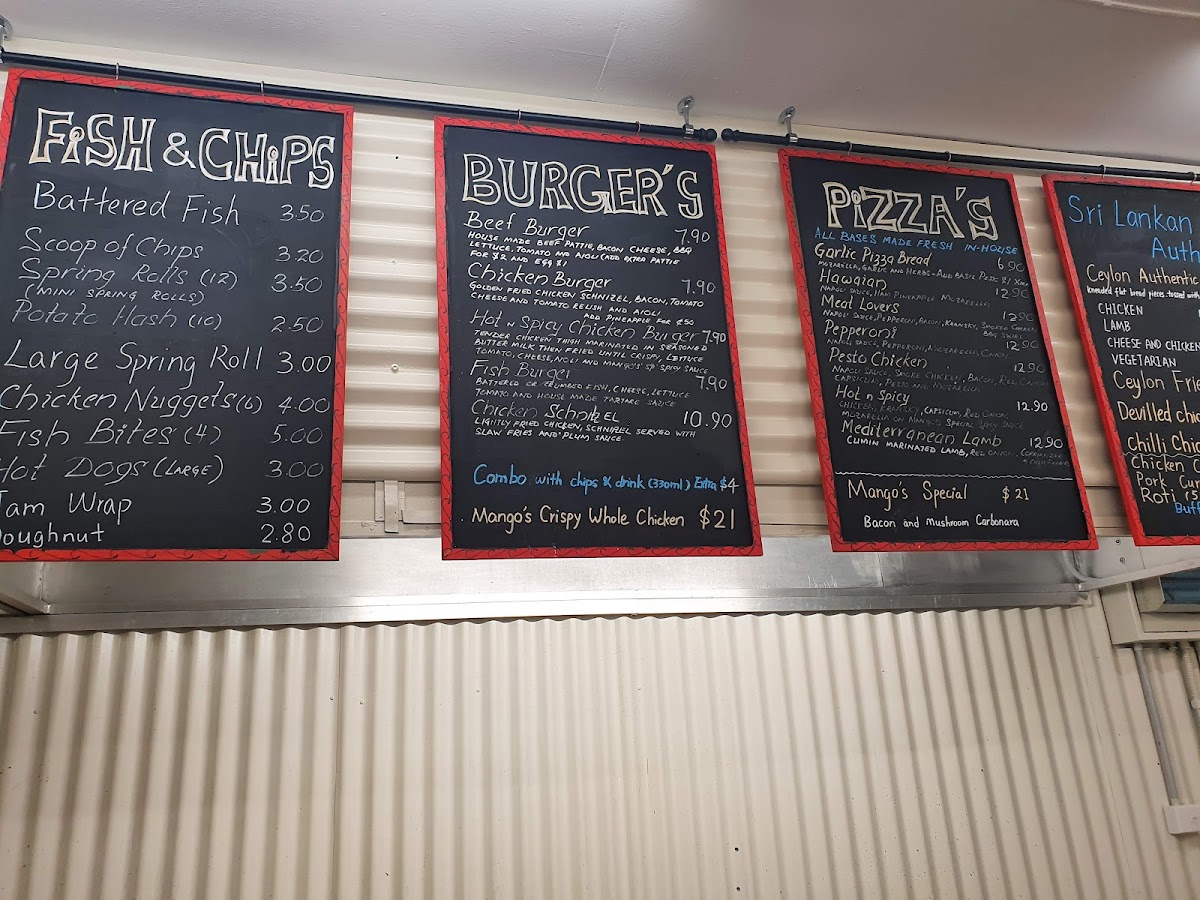 FiSH & CHiPS
Battered Fish 3.50
Scoop of Chips 3.20
Spring Rolls (12) 3.50
(MINI SPRING ROLLS)
Potato Hash (10) 2.50
Large Spring Roll 3.00
Chicken Nuggets (6) 4.00
Fish Bites (4) 5.00
Hot Dogs (LARGE) 3.00
Jam Wrap 3.00
Doughnut 2.80
BURGER'S
Beef Burger 7.90
HOUSE MADE BEEF PATTIE, BACON CHEESE, BBQ
LETTUCE, TOMATO AND AIOLI (ADD EXTRA PATTIE
FOR $2 AND EGG $1
Chicken Burger 7.90
GOLDEN FRIED CHICKEN SCHNIZEL, BACON, TOMATO
CHEESE AND TOMATO RELISH AND AIOLI
ADD PINEAPPLE FOR $.50
Hot n Spicy Chicken Burger 7.90
TENDER CHICKEN THIGH MARINATED IN SEASONED
BUTTER MILK THEN FRIED UNTIL CRISPY, LETTUCE
TOMATO, CHEESE, AIOLI AND MANGO'S SPICY SAUCE
Fish Burger 7.90
BATTERED OR CRUMBED FISH, CHEESE, LETTUCE
TOMATO AND HOUSE MADE TARTARE SAUCE
Chicken SchnitzEL 10.90
LIGHTLY FRIED CHICKEN, SCHNIZEL SERVED WITH
SLAW FRIES AND PLUM SAUCE.
Combo with chips & drink (330ml) Extra $4
Mango's Crispy Whole Chicken $21
PiZZA'S
ALL BASES MADE FRESH IN-HOUSE
Garlic Pizza Bread 6.90
MOZARELLA, GARLIC AND HERBS - ADD BASIL
Hawaian 12.90
NAPOLI SAUCE, HAM PINEAPPLE MOZARELLA
Meat Lovers 12.90
NAPOLI SAUCE, PEPPERONI, BACON, KRANSKY, SMOKED CHICKEN,
BBQ SWIRL
Pepperoni 12.90
NAPOLI SAUCE, PEPPERONI, MOZARELLA, ONION
Pesto Chicken 12.90
NAPOLI SAUCE, SMOKED CHICKEN, BACON, RED ONION
CAPSICUM, PESTO AND MOZARELLA
Hot n Spicy 12.90
CHICKEN, KRANSKY, CAPSICUM, RED ONION,
MOZARELLA ON MANGO'S SPECIAL SPICY SAUCE
Mediterranean Lamb 12.90
CUMIN MARINATED LAMB, RED ONION, CORRIANDER
Mango's Special $21
Bacon and Mushroom Carbonara
Sri Lankan
Auth
Ceylon Authentic
kneaded flat bread pieces tossed with
CHICKEN
LAMB
CHEESE AND CHICKEN
VEGETARIAN
Ceylon Frie
Devilled chic
Chilli Chic
Chicken C
Pork Cur
Roti (5
Buff